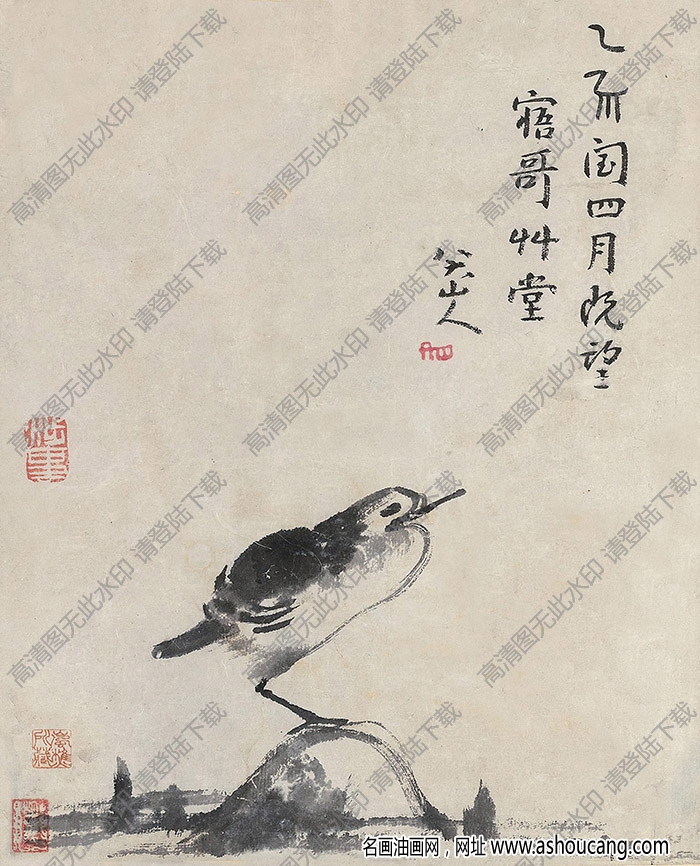 乙亥閏四月既望
寤哥艸堂
八大山人
高清图无此水印 请登陆下载
名画油画网，网址 www.ashoucang.com